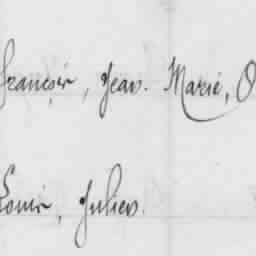 François, Jean. Marie, O
Louis, Julien.